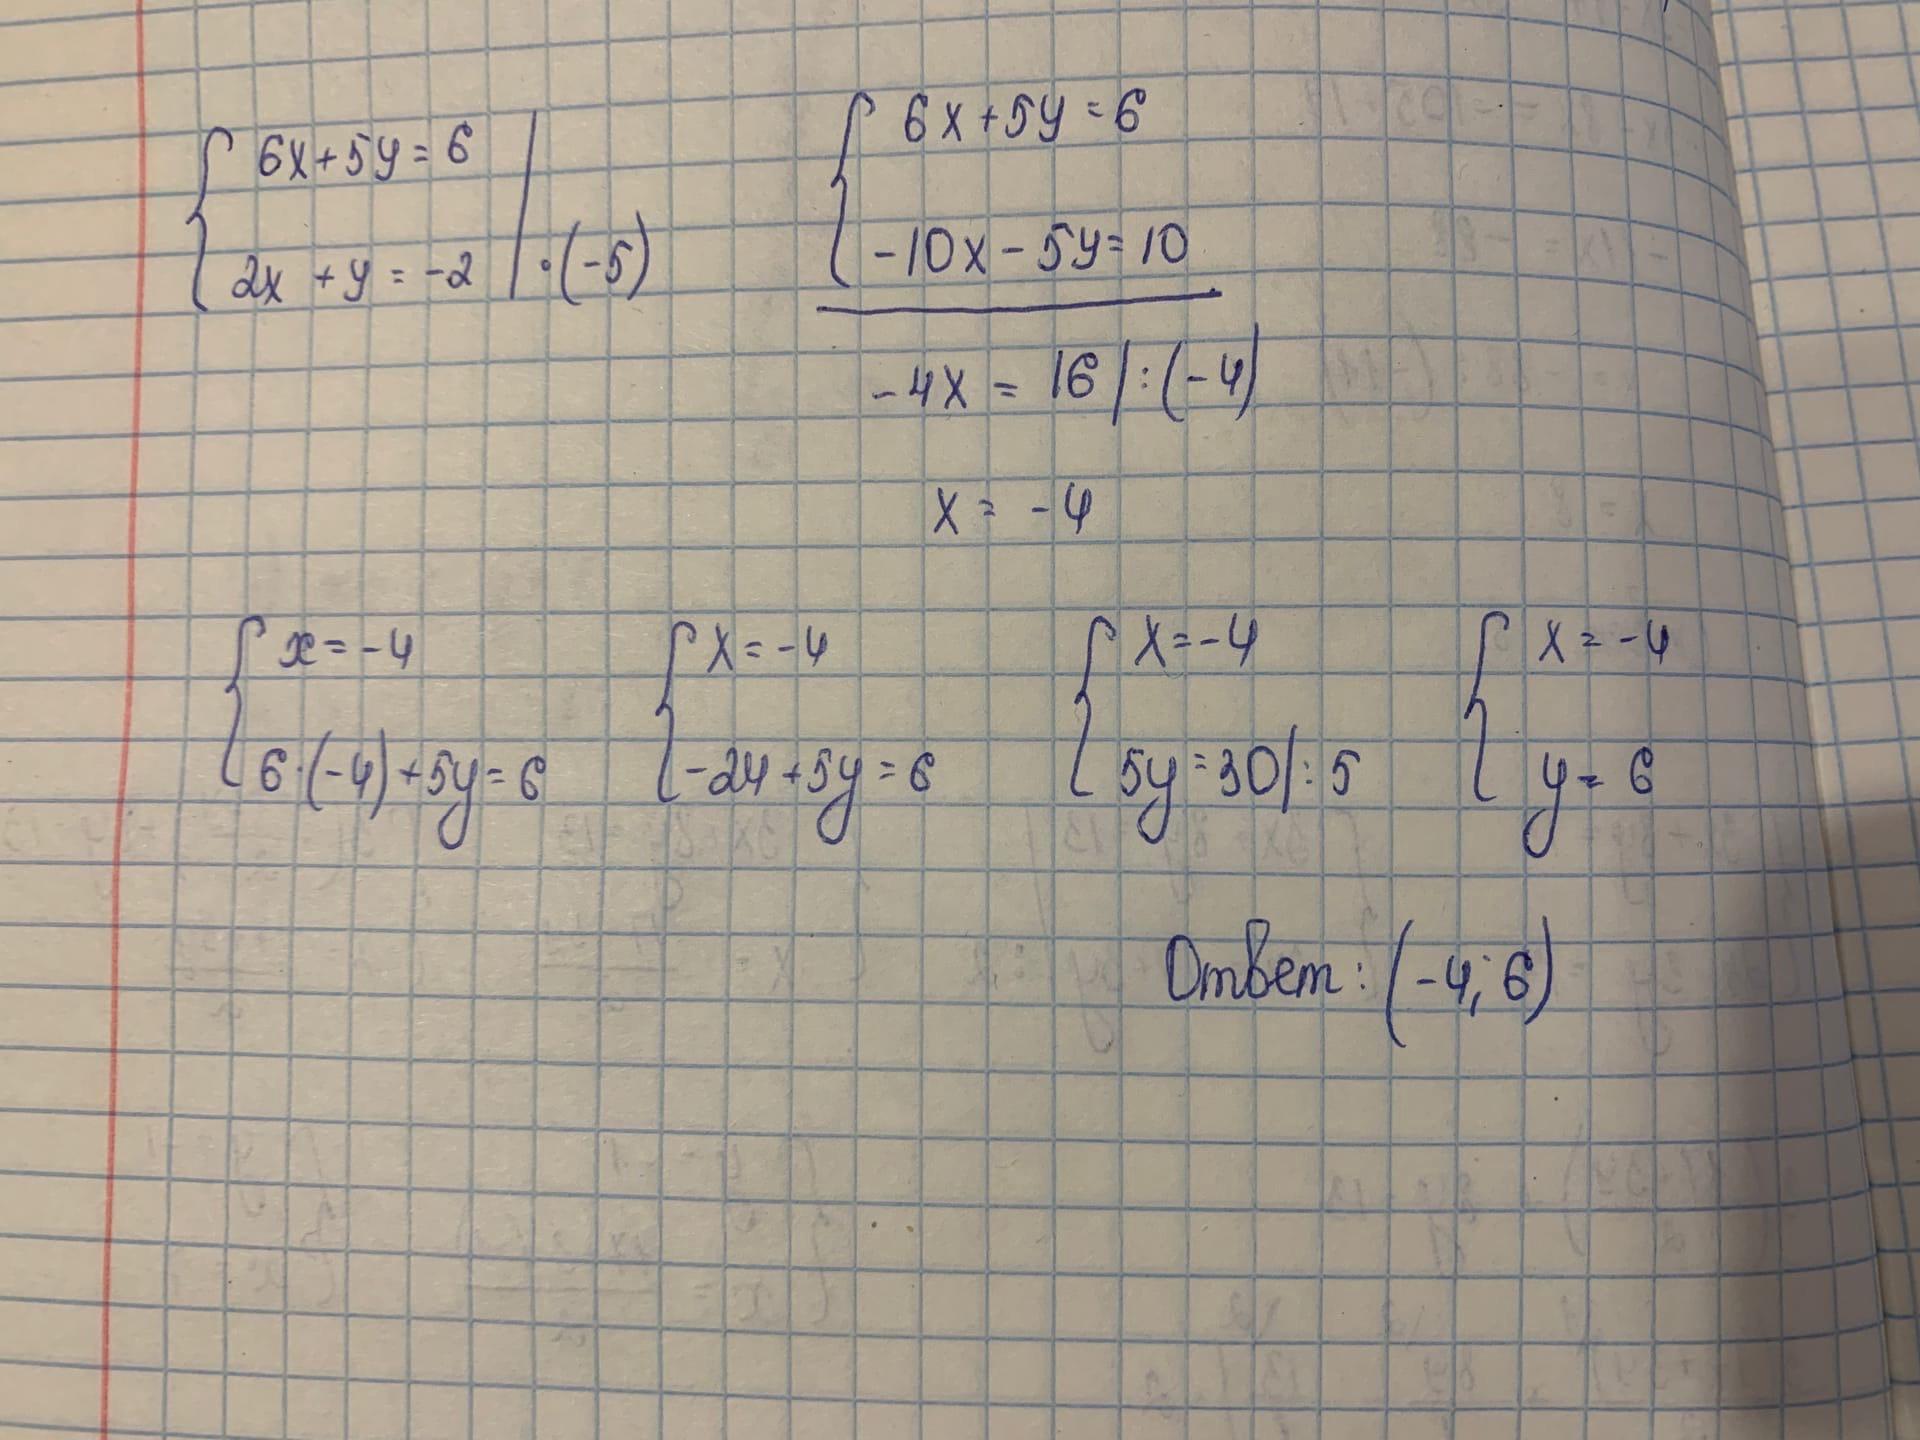 6x+5y=6
2x+y=-2 | ·(-5)
6x+5y=6
-10x-5y=10
-4x = 16 |:(-4)
x = -4
x=-4
6·(-4)+5y=6
x=-4
-24+5y=6
x=-4
5y=30|:5
x=-4
y=6
Ответ: (-4; 6)